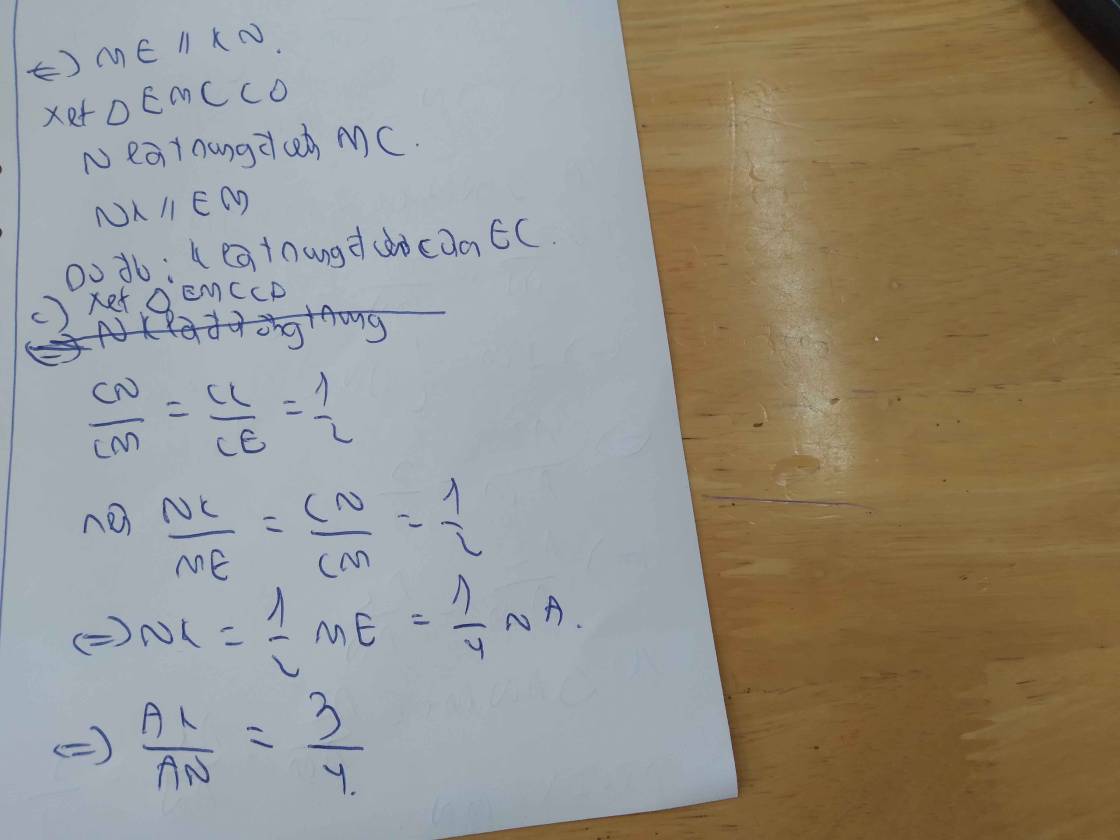 ⇔) ME // KN.
xét Δ EMC CÓ
N là trung điểm MC.
NK // EM
Do đó: K là trung điểm của EC.
c) xét Δ EMC CÓ
⇔) NK là đường trung
CN/CM = CK/CE = 1/2
nên NK/ME = CN/CM = 1/2
⇔) NK = 1/2 ME = 1/4 NA.
⇔) AK/AN = 3/4.